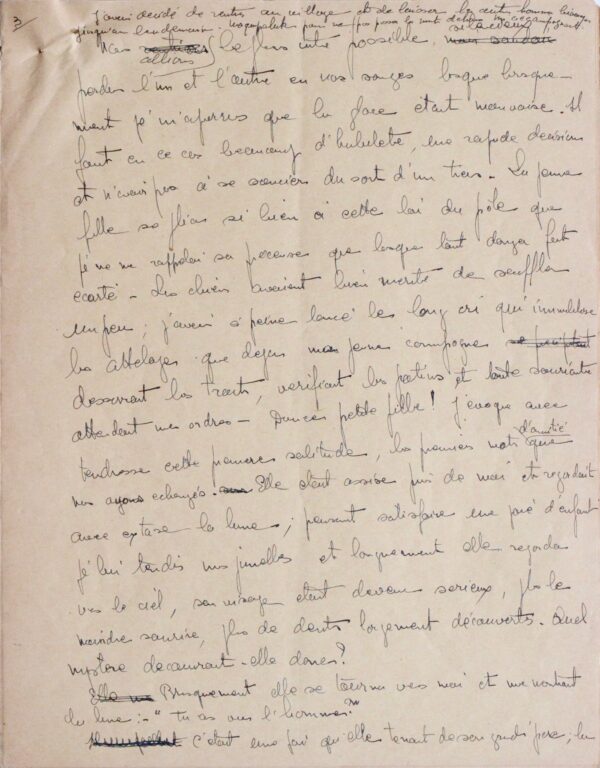 3
J'avais décidé de rentrer au village et de laisser les deux hommes
jusqu'au lendemain. pour ne pas passer la nuit dehors
Nous allions le plus vite possible,
perdus l'un et l'autre en nos songes lorsque brusque-
ment je m'aperçus que la glace était mauvaise. Il
faut en ce cas beaucoup d'habileté, une rapide décision
et n'avoir pas à se soucier du sort d'un tiers - La jeune
fille se plia si bien à cette loi du pôle que
je ne me rappelai sa présence que lorsque tout danger fut
écarté - Les chiens avaient bien mérité de souffler
un peu ; j'avais à peine lancé le long cri qui immobilise
les attelages que déjà ma jeune compagne se précipitant
desserrant les traits, vérifiant les patins et toute souriante
attendait mes ordres - Douce petite fille ! J'évoque avec
tendresse cette première solitude, les premiers mots d'amitié que
nous ayons échangés. Elle était assise près de moi et regardait
avec extase la lune ; pensant satisfaire une joie d'enfant
je lui tendis mes jumelles et longuement elle regarda
vers le ciel, son visage était devenu sérieux, plus le
moindre sourire, plus de dents largement découvertes. Quel
mystère découvrait-elle donc ?
Elle me Brusquement elle se tourna vers moi et me montrant
la lune : - " Tu as vu l'homme ? "
c'était une foi qu'elle tenait de son grand'père ; la